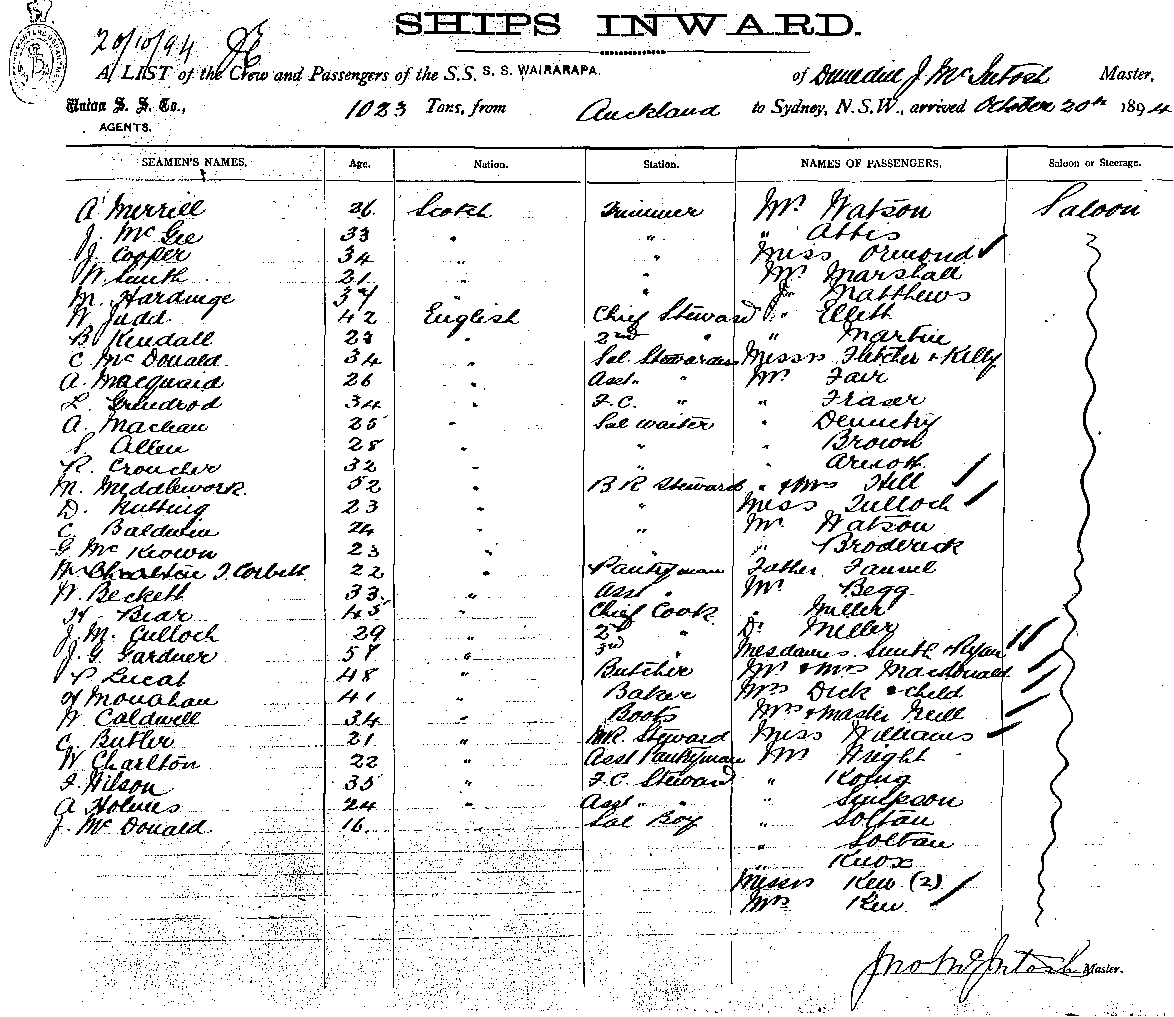 SHIPS INWARD.
20/10/94
A LIST of the Crew and Passengers of the S.S. S. S. WAIRARAPA. of Dunedin J McIntosh Master,
Union S. S. Co., 1023 Tons, from Auckland to Sydney, N.S.W., arrived October 20th 1894
AGENTS.
SEAMEN'S NAMES. Age. Nation. Station. NAMES OF PASSENGERS. Saloon or Steerage.
A Merrill 26 Scotch Trimmer Mr Watson Saloon
J. McGee 33 " " " Abbis
J. Cooper 34 " " Miss Ormond
W Smith 21 " " Mr Marshall
M. Hardinge 37 " " J. Matthews
W Judd 42 English Chief Steward " Elleth
B Kendall 23 " 2nd " " Martin
C McDonald 34 " Sal Stewardess Messrs Fletcher & Kelly
A. Macquaid 26 " Asst. " Mr Fair
L. Grindrod 34 " F.C. " " Fraser
A. Machan 25 " Sal waiter " Dennehy
S. Allen 28 " " " Brown
R. Croucher 32 " " " Arnott
M. Middlework 52 " B R Steward " & Mrs Hill
D. Nutting 23 " " Miss Tulloch
C Baldwin 24 " " Mr Watson
G McKeown 23 " " " Broderick
W Charlton T. Corbett 22 " Pantryman Father
W. Beckett 33 " Asst " Mr Begg
H Bear 45 " Chief Cook " Miller
J. M. Culloch 29 " 2nd " Dr Miller
J. G. Gardner 57 " 3rd Mesdames Smith & Ryan
P Lucas 48 " Butcher Mr & Mrs Macdonald
H Monahan 41 " Baker Mrs Dick & child
W Caldwell 34 " Boots Mrs & Master Neill
C. Butler 21 " B.R. Steward Miss Williams
W Charlton 22 " Asst Pantryman Mr Wright
F. Wilson 35 " F.C. Steward " Konig
A Holmes 24 " Asst " " " Simpson
J. McDonald 16 " Sal Boy " Soltau
" Soltau
" Knox
Messrs Kew (2)
Mrs Kew
Jno McIntosh Master.